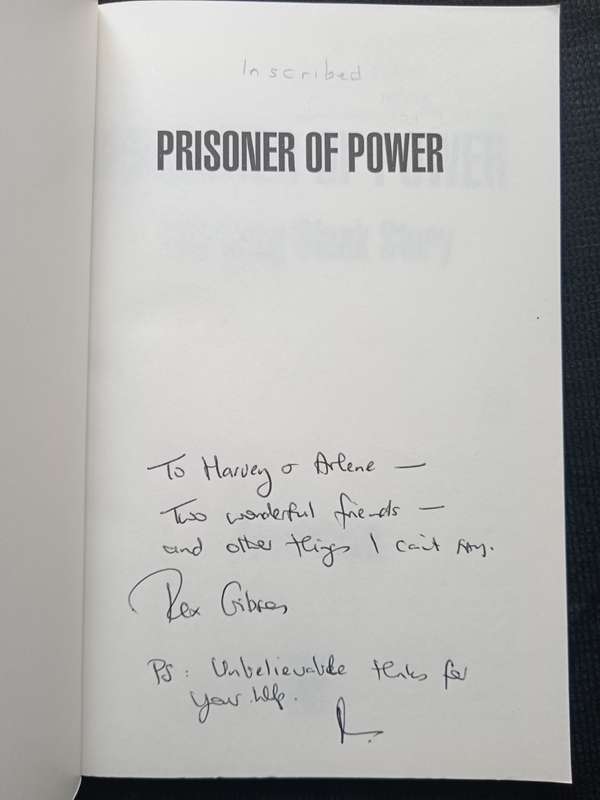 Inscribed
PRISONER OF POWER
To Harvey & Arlene —
Two wonderful friends —
and other things I can't say.
Rex Gibson
PS: Unbelievable thanks for
your help.
R